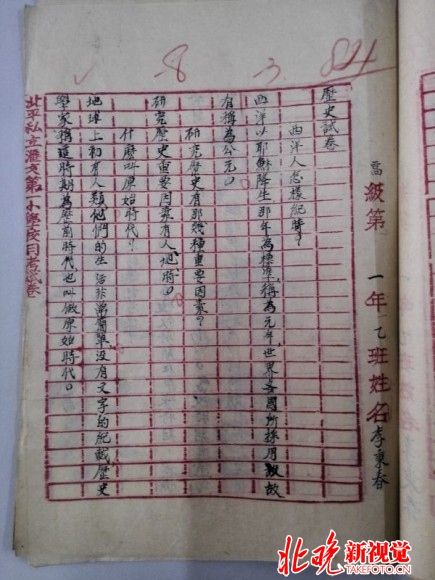 824
3
8
高級第一年乙班姓名李東春
歷史試卷
西洋人怎樣紀時?
西洋以耶穌降生那年為標準,稱為元年,世界各國所採用,故
有稱為公元。
研究歷史有那幾種重要因素?
研究歷史重要因素有人地時。
什麼叫原始時代?
地球上初有人類他們的生活非常簡單,沒有文字的紀載,歷史
學家稱這時期為歷前時代也叫做原始時代。
北平私立滙文第一小學校月考試卷
北晚新視覺
TAKEFOTO.CN